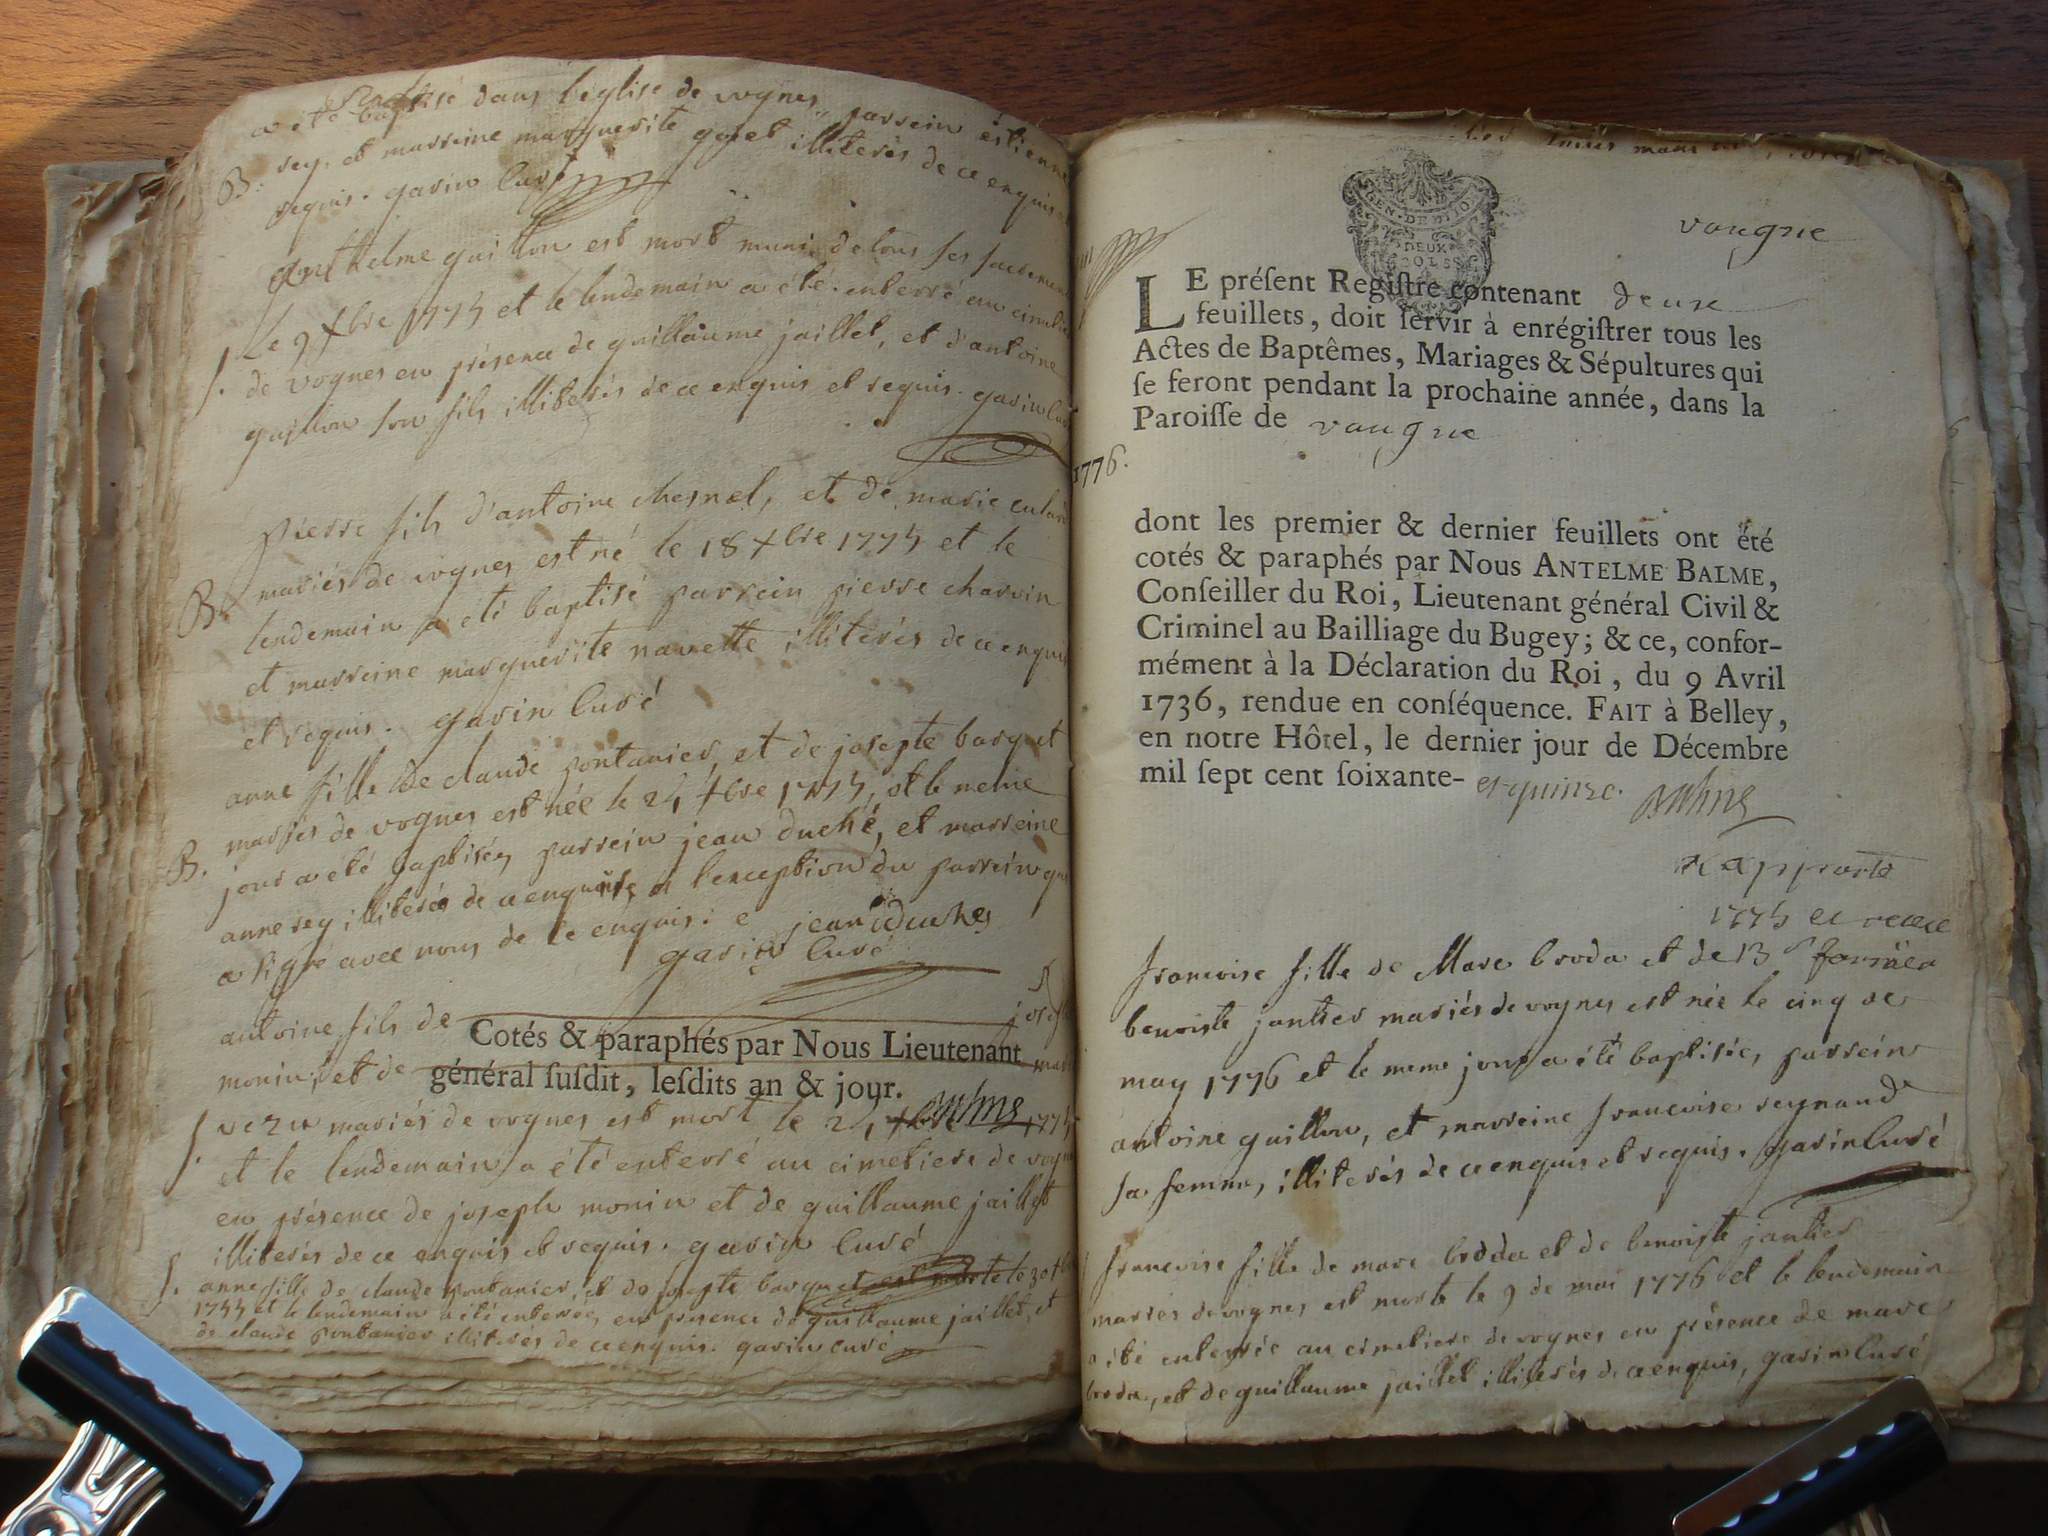 a été baptisé dans l'église de vognes, parrein etienne
B. rey. et marreine marguerite goyet illiterés de ce enquis et
requis. garin Curé
Anthelme guillon est mort muni de tous ses sacremens
le 9 Xbre 1775 et le lendemain a été enterré au cimetiere
S. de vognes en présence de guillaume jaillet, et d'antoine
guillon son fils illiterés de ce enquis et requis. garin Curé
pierre fils d'antoine chesnel, et de marie
mariés de vognes est né le 18 Xbre 1775 et le
B. lendemain a été baptisé parrein pierre charvin
et marreine marguerite navette illiterés de ce enquis
et requis. garin Curé
anne fille de claude pontanier, et de josepte barquet
mariés de vognes est née le 24 Xbre 1775, et le meme
B. jour a été baptisée, parrein jean duché, et marreine
anne rey illiterés de ce enquise a l'exception du parrein qui
a signé avec nous de ce enquis. jean duches
garin Curé
antoine fils de joseph
Cotés & paraphés par Nous Lieutenant
monin, et de
général ſuſdit, leſdits an & jour.
S. mariés de vognes est mort le 24 Xbre Balme 1775
et le lendemain a été enterré au cimetiere de vognes
en présence de joseph monin et de guillaume jaillet
illiterés de ce enquis et requis. garin Curé
S. anne fille de claude pontanier, et de josepte barquet est morte le 30 Xbre
1775 et le lendemain a été enterrée, en présence de guillaume jaillet, et
de claude pontanier illiterés de ce enquis. garin curé
GEN. DE DIJON
DEUX
SOLS
vongne
LE préſent Regiſtre contenant deux
feuillets, doit ſervir à enrégiſtrer tous les
Actes de Baptêmes, Mariages & Sépultures qui
ſe feront pendant la prochaine année, dans la
Paroiſſe de vongne
1776.
dont les premier & dernier feuillets ont été
cotés & paraphés par Nous ANTELME BALME,
Conſeiller du Roi, Lieutenant général Civil &
Criminel au Bailliage du Bugey; & ce, confor-
mément à la Déclaration du Roi, du 9 Avril
1736, rendue en conſéquence. FAIT à Belley,
en notre Hôtel, le dernier jour de Décembre
mil ſept cent ſoixante- et quinze. Balme
Rapporté
1775
francoise fille de Marc broda et de
benoiste jantier mariés de vognes est née le cinq de
may 1776 et le meme jour a été baptisée, parrein
antoine guillon, et marreine francoise reynaud
sa femme, illiterés de ce enquis et requis. garin Curé
francoise fille de marc brodda et de benoiste jantier
mariés de vognes est morte le 9 de mai 1776 et le lendemain
a été enterrée au cimetiere de vognes en présence de marc
broda, et de guillaume jaillet illiterés de ce enquis, garin Curé